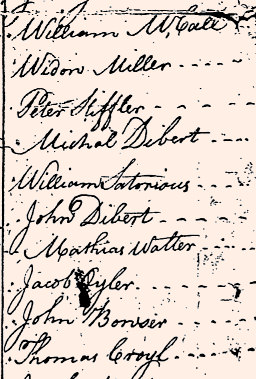 William McCall
Widow Miller
Peter Stiffler
Michal Dibert
William Satorious
John Dibert
Mathias Watter
Jacob Oyler
John Bowser
Thomas Croyl